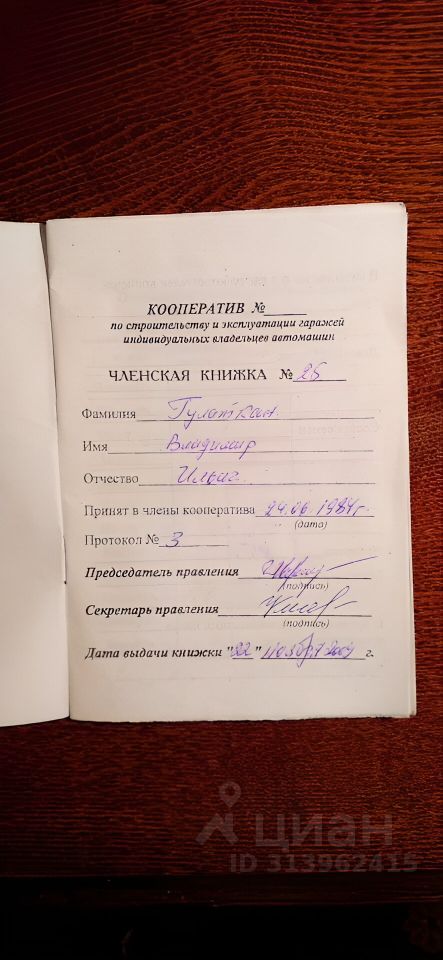 КООПЕРАТИВ №
по строительству и эксплуатации гаражей
индивидуальных владельцев автомашин
ЧЛЕНСКАЯ КНИЖКА № 26
Фамилия
Имя Владимир
Отчество
Принят в члены кооператива 29.06.1984г.
(дата)
Протокол № 3
Председатель правления
(подпись)
Секретарь правления
(подпись)
Дата выдачи книжки "22" ноября 2004 г.
циан
ID 313962415